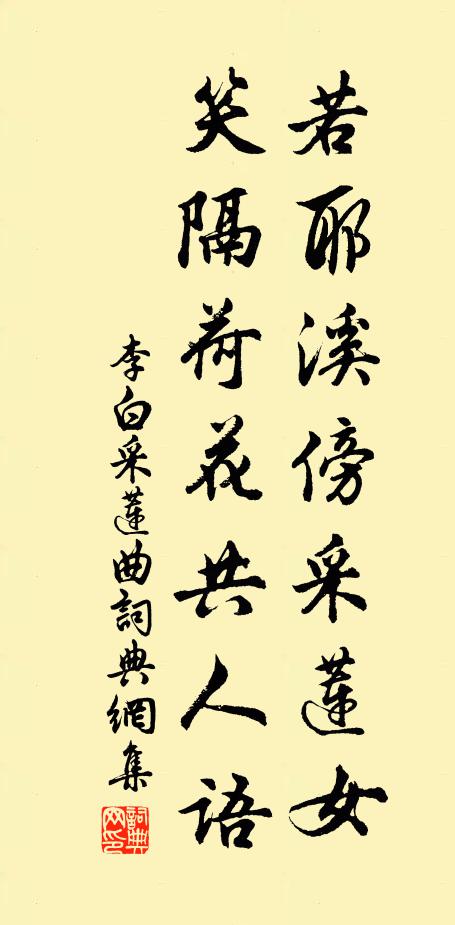 若耶溪傍采蓮女
笑隔荷花共人語
李白采蓮曲詞典網集
詞典網印